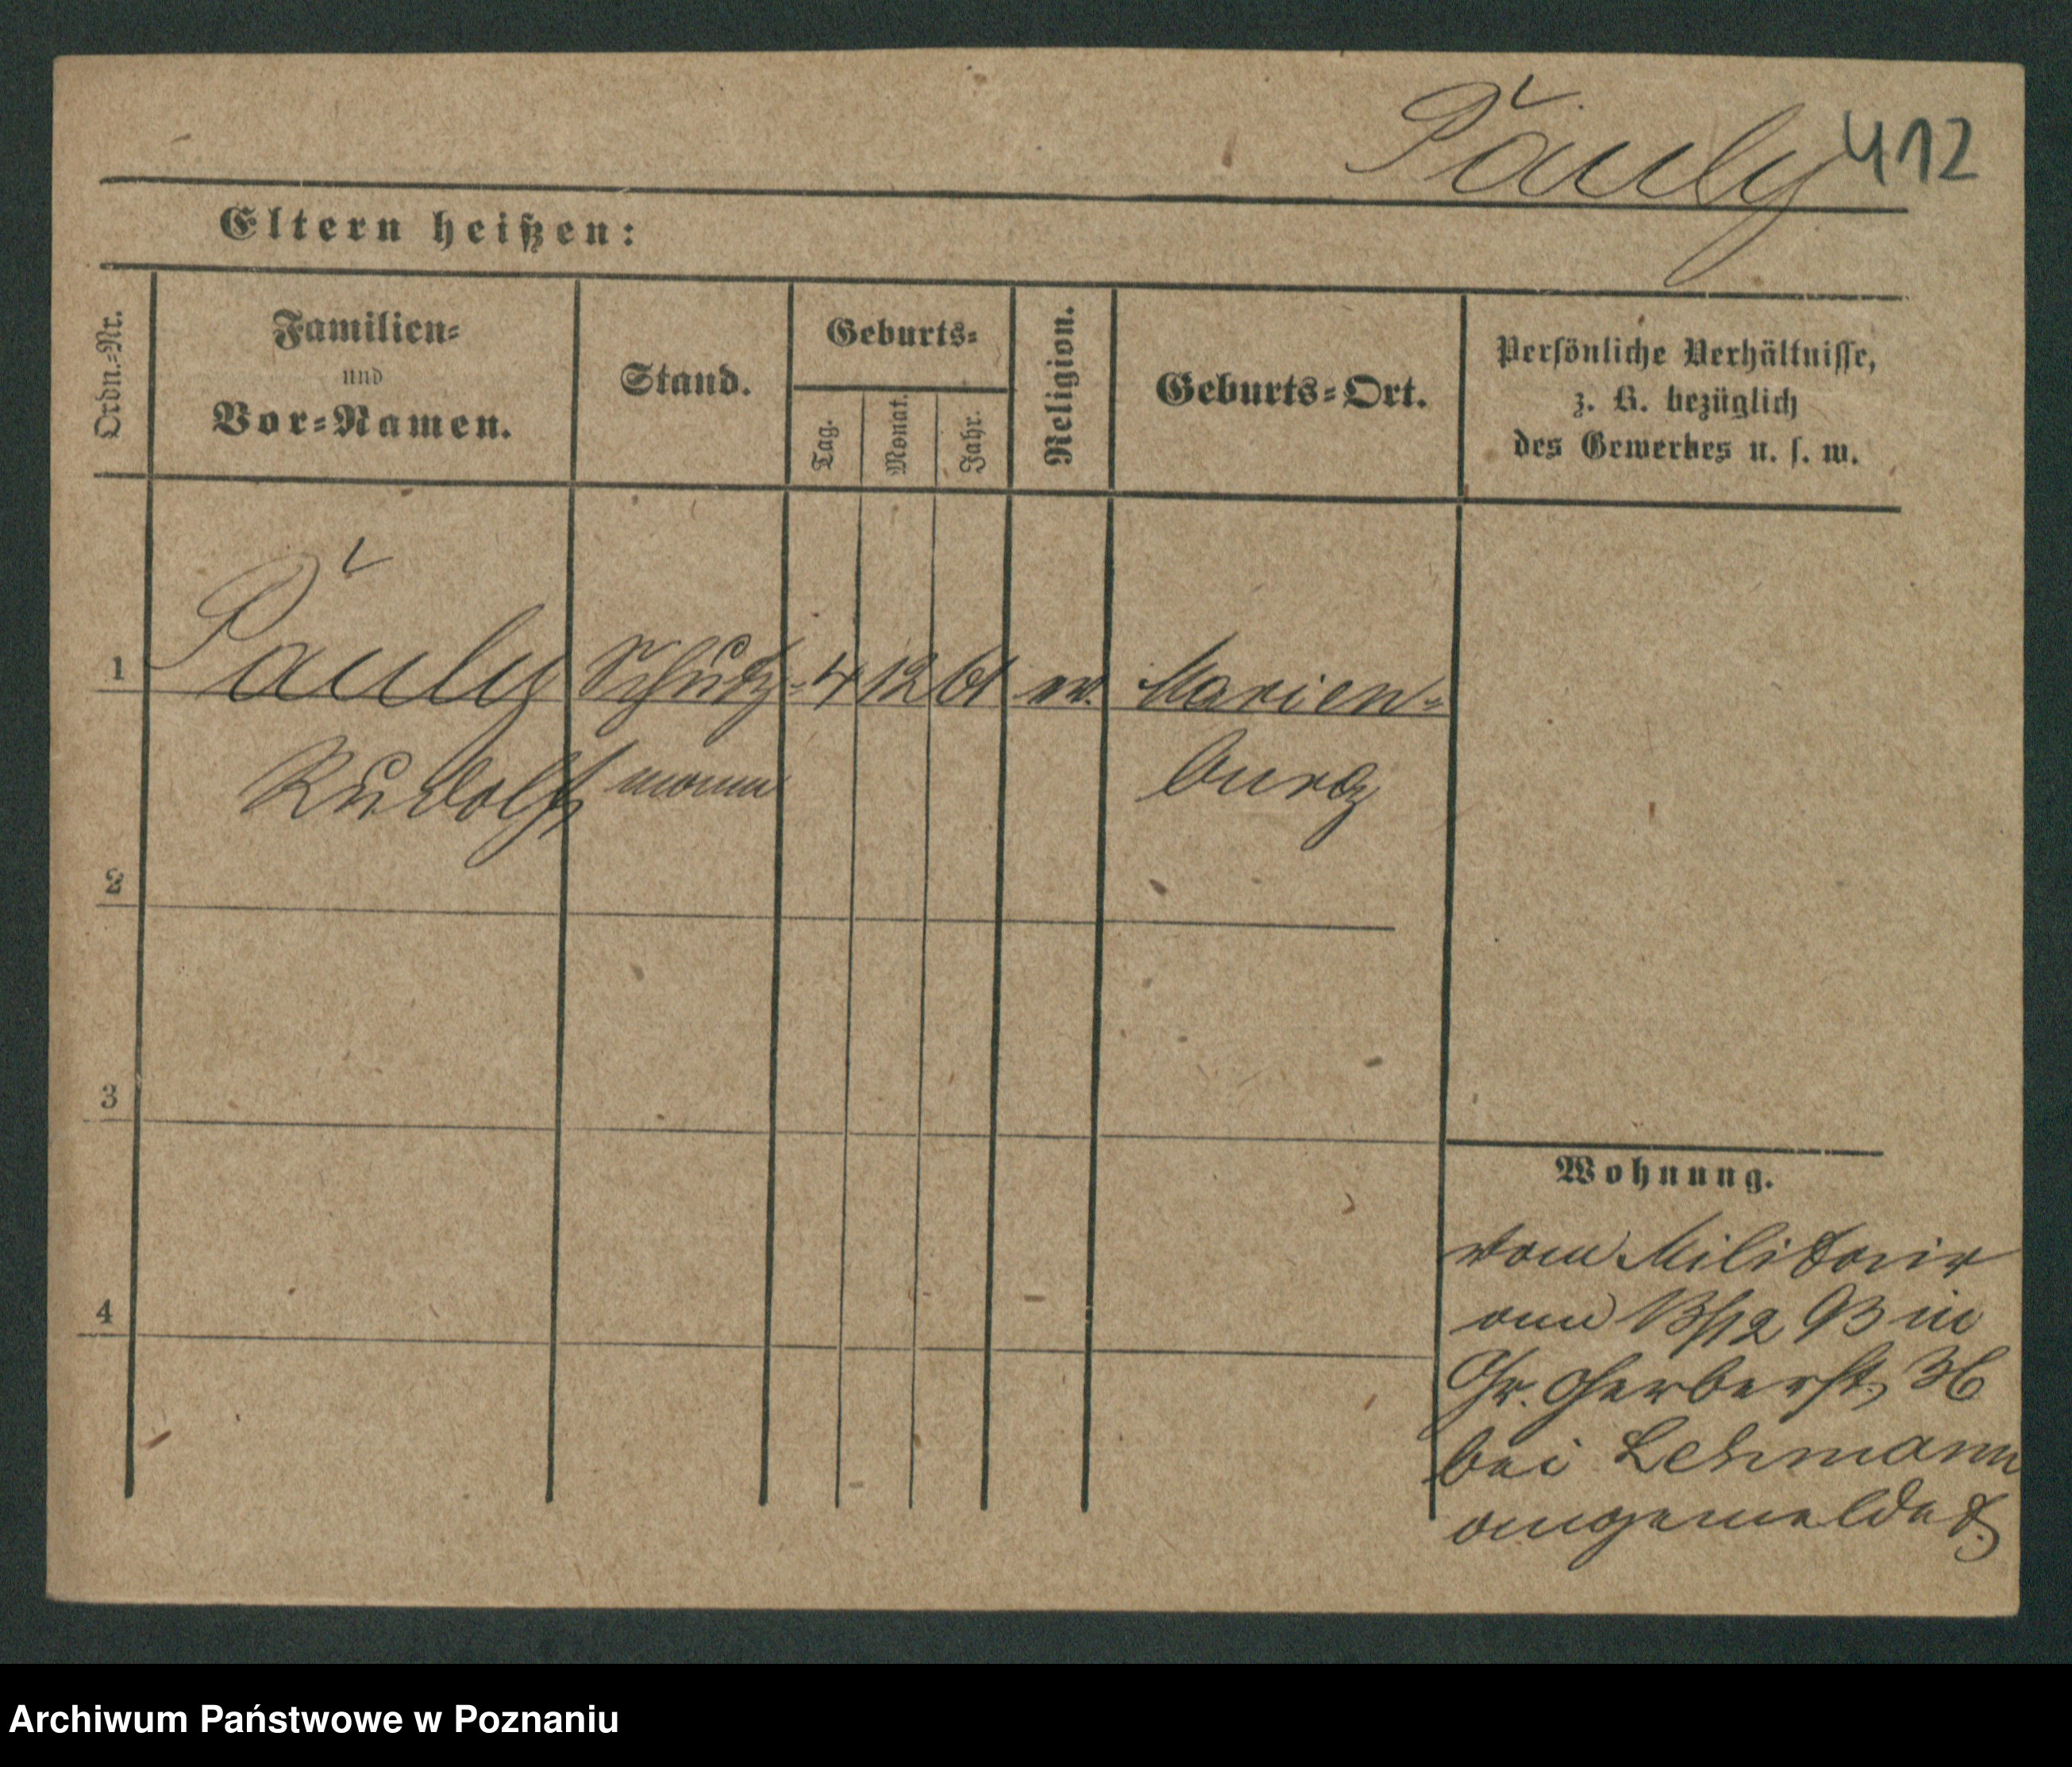 Pauly 412
Eltern heißen:
Ordn.=Nr.
Familien=
und
Vor=Namen.
Stand.
Geburts=
Tag.
Monat.
Jahr.
Religion.
Geburts=Ort.
Persönliche Verhältnisse,
z. B. bezüglich
des Gewerbes u. s. w.
1 Pauly Schutz= 4 12 61 ev. Marien=
Rudolf mann burg
2
3
4
Wohnung.
vom Militair
am 13/12 93 in
Gr. Gerberst. 36
bei Lehmann
angemeldet.
Archiwum Państwowe w Poznaniu